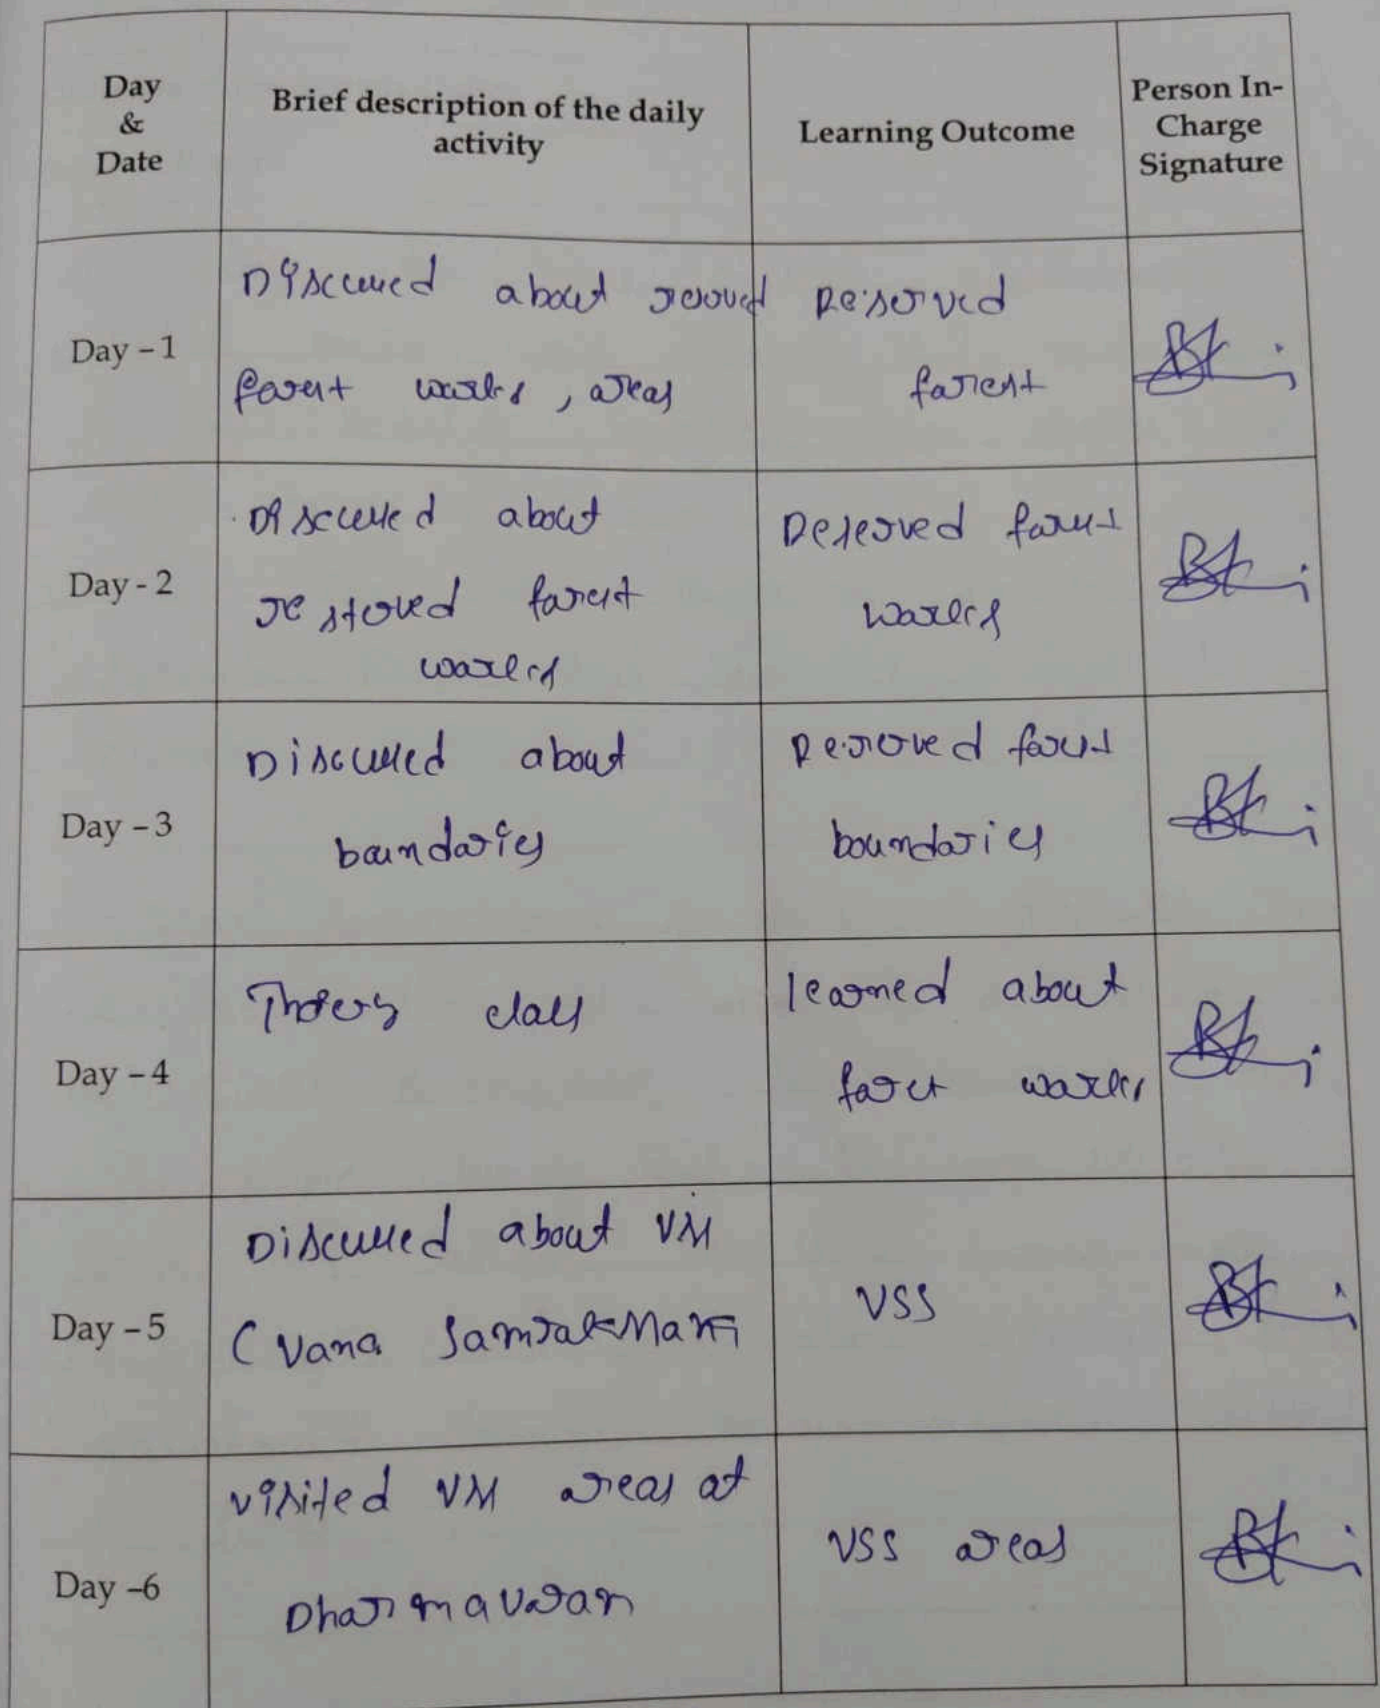 Day
&
Date
Brief description of the daily
activity
Learning Outcome
Person In-
Charge
Signature
Day – 1
Discussed about reserved
forest works, areas
Reserved
forest
Day - 2
Discussed about
reserved forest
works
Reserved forest
works
Day – 3
Discussed about
boundaries
Reserved forest
boundaries
Day – 4
Theory class
learned about
forest works
Day – 5
Discussed about VSS
( Vana
VSS
Day –6
visited VSS areas at
Dharmavaram
VSS areas